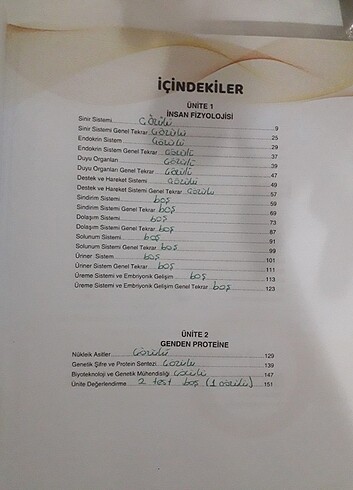 İÇİNDEKİLER
ÜNİTE 1
İNSAN FİZYOLOJİSİ
Sinir Sistemi çözülü 9
Sinir Sistemi Genel Tekrar çözülü 25
Endokrin Sistem çözülü 29
Endokrin Sistem Genel Tekrar çözülü 37
Duyu Organları çözülü 39
Duyu Organları Genel Tekrar çözülü 47
Destek ve Hareket Sistemi çözülü 49
Destek ve Hareket Sistemi Genel Tekrar çözülü 57
Sindirim Sistemi boş 59
Sindirim Sistemi Genel Tekrar boş 69
Dolaşım Sistemi boş 73
Dolaşım Sistemi Genel Tekrar boş 87
Solunum Sistemi boş 91
Solunum Sistemi Genel Tekrar boş 99
Üriner Sistem boş 101
Üriner Sistem Genel Tekrar boş 111
Üreme Sistemi ve Embriyonik Gelişim boş 113
Üreme Sistemi ve Embriyonik Gelişim Genel Tekrar boş 123
ÜNİTE 2
GENDEN PROTEİNE
Nükleik Asitler çözülü 129
Genetik Şifre ve Protein Sentezi çözülü 139
Biyoteknoloji ve Genetik Mühendisliği çözülü 147
Ünite Değerlendirme 2 test boş (1 çözülü) 151